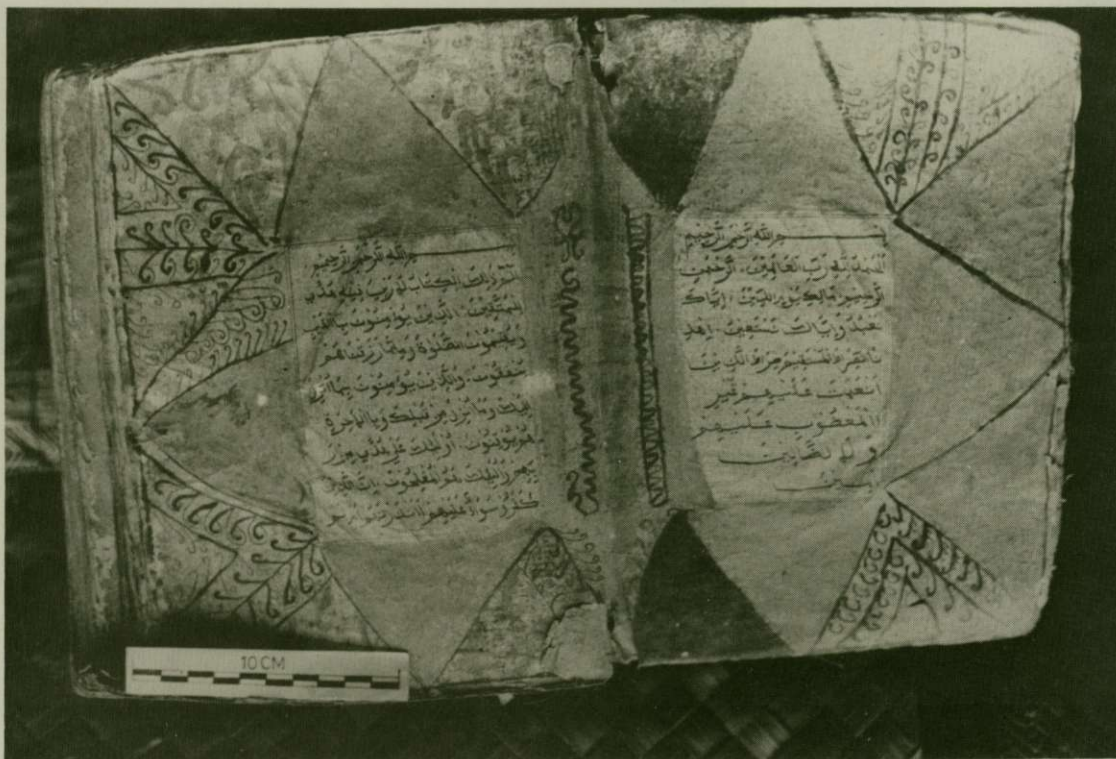 بسم الله الرحمن الرحيم
الحمد لله رب العالمين الرحمن
الرحيم مالك يوم الدين إياك
نعبد وإياك نستعين اهد
نا الصراط المستقيم صراط الذين
أنعمت عليهم غير
المغضوب عليهم
ولا الضالين
بسم الله الرحمن الرحيم
الم ذلك الكتاب لا ريب فيه هدى
للمتقين الذين يؤمنون بالغيب
ويقيمون الصلوة ومما رزقناهم
ينفقون والذين يؤمنون بما انزل
اليك وما انزل من قبلك وبالاخرة
هم يوقنون اولئك على هدى من
ربهم واولئك هم المفلحون ان الذين
كفروا سواء عليهم ءانذرتهم ام لم
10 CM